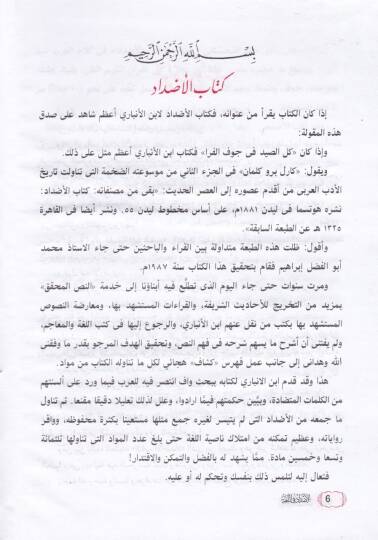 بسم الله الرحمن الرحيم
كتاب الأضداد
إذا كان الكتاب يقرأ من عنوانه، فكتاب الأضداد لابن الأنباري أعظم شاهد على صدق
هذه المقولة:
وإذا كان «كل الصيد فى جوف الفرا» فكتاب ابن الأنباري أعظم مثل على ذلك.
ويقول: «كارل برو كلمان» فى الجزء الثاني من موسوعته الضخمة التى تناولت تاريخ
الأدب العربى من أقدم عصوره إلى العصر الحديث: «بقى من مصنفاته: كتاب الأضداد:
نشره هوتسما فى ليدن ١٨٨١م، على أساس مخطوط ليدن ٥٥، ونشر أيضا فى القاهرة
١٣٢٥ هـ عن الطبعة السابقة».
وأقول: ظلت هذه الطبعة متداولة بين القراء والباحثين حتى جاء الاستاذ محمد
أبو الفضل إبراهيم فقام بتحقيق هذا الكتاب سنة ١٩٨٧م.
ومرت سنوات حتى جاء اليوم الذى تطلع فيه أبناؤنا إلى خدمة «النص المحقق»
بمزيد من التخريج للأحاديث الشريفة، والقراءات المستشهد بها، ومعارضة النصوص
المستشهد بها بكتب من نقل عنهم ابن الأنباري، والرجوع إليها فى كتب اللغة والمعاجم،
ولم يفتنى أن أشرح ما يسهم شرحه فى فهم النص، وتحقيق الهدف المرجو بقدر ما وفقنى
الله وهدانى إلى جانب عمل فهرس «كشاف» هجائي لكل ما تناوله الكتاب من مواد.
هذا وقد قدم ابن الانباري لكتابه ببحث واف انتصر فيه للعرب فيما ورد على ألسنتهم
من الكلمات المتضادة، ويبين حكمتهم فيما أرادوا، وعلل لذلك تعليلا دقيقا مقنعا. ثم تناول
ما جمعه من الأضداد التى لم يتيسر لغيره جمع مثلها مستعينا بكثرة محفوظه، ووافر
رواياته، وعظيم تمكنه من امتلاك ناصية اللغة حتى بلغ عدد المواد التى تناولها ثلثمائة
وتسعا وخمسين مادة. مما يشهد له بالفضل والتمكن والاقتدار!
فتعال إليه لتلمس ذلك بنفسك وتحكم له أو عليه.
6